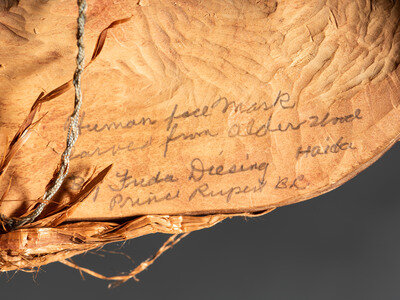 Human face Mask
carved from Alder Wood
By Freda Diesing Haida
Prince Rupert B.C.